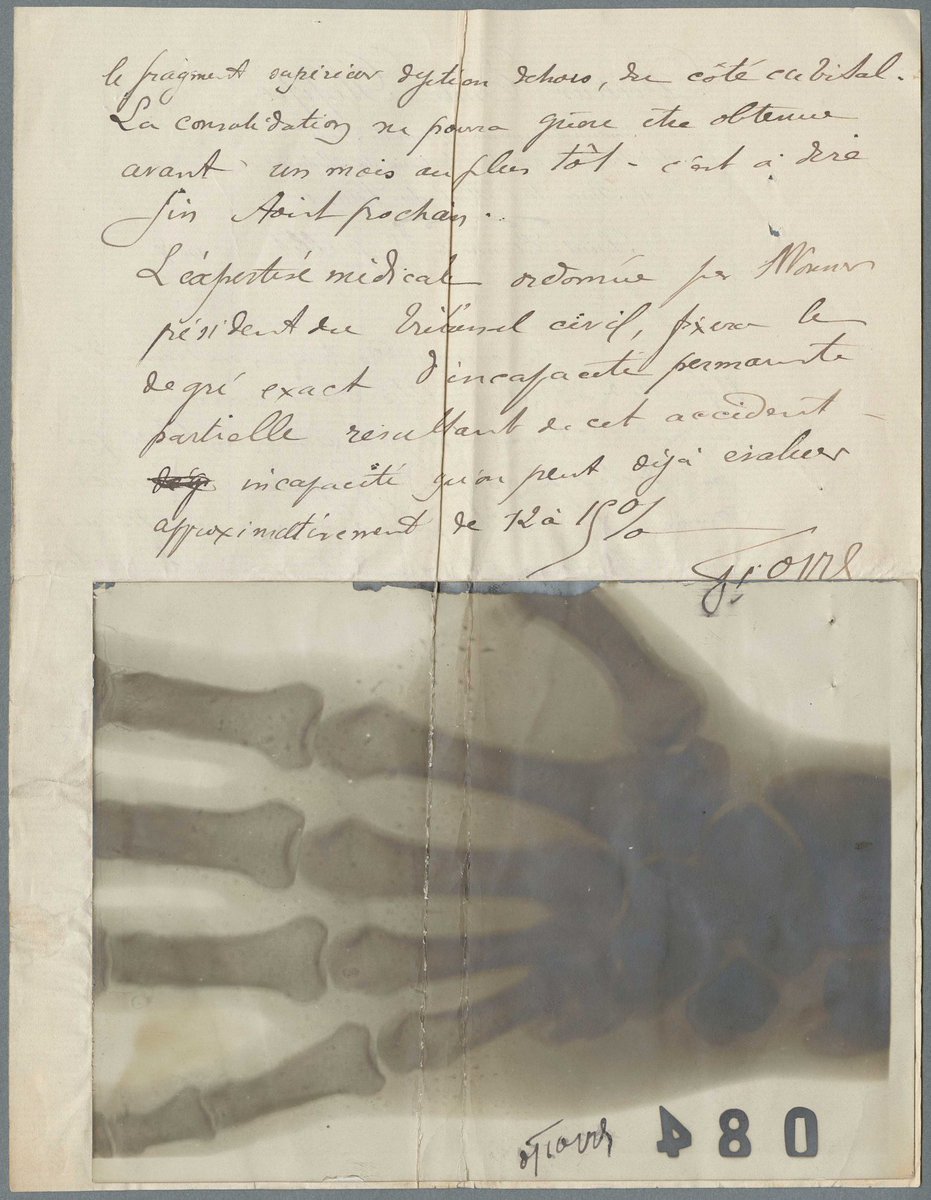 le fragment supérieur déjeté en dehors, du côté cubital.
La consolidation ne pourra guère être obtenue
avant un mois au plus tôt - c'est à dire
fin Août prochain.
L'éxpertise médicale ordonnée par
président du Tribunal civil, fixera le
degré exact d'incapacité permanente
partielle résultant de cet accident -
incapacité qu'on peut déjà évaluer
approximativement de 12 à 15 %
084